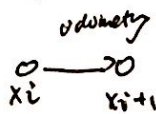 odometry
xi xi+1